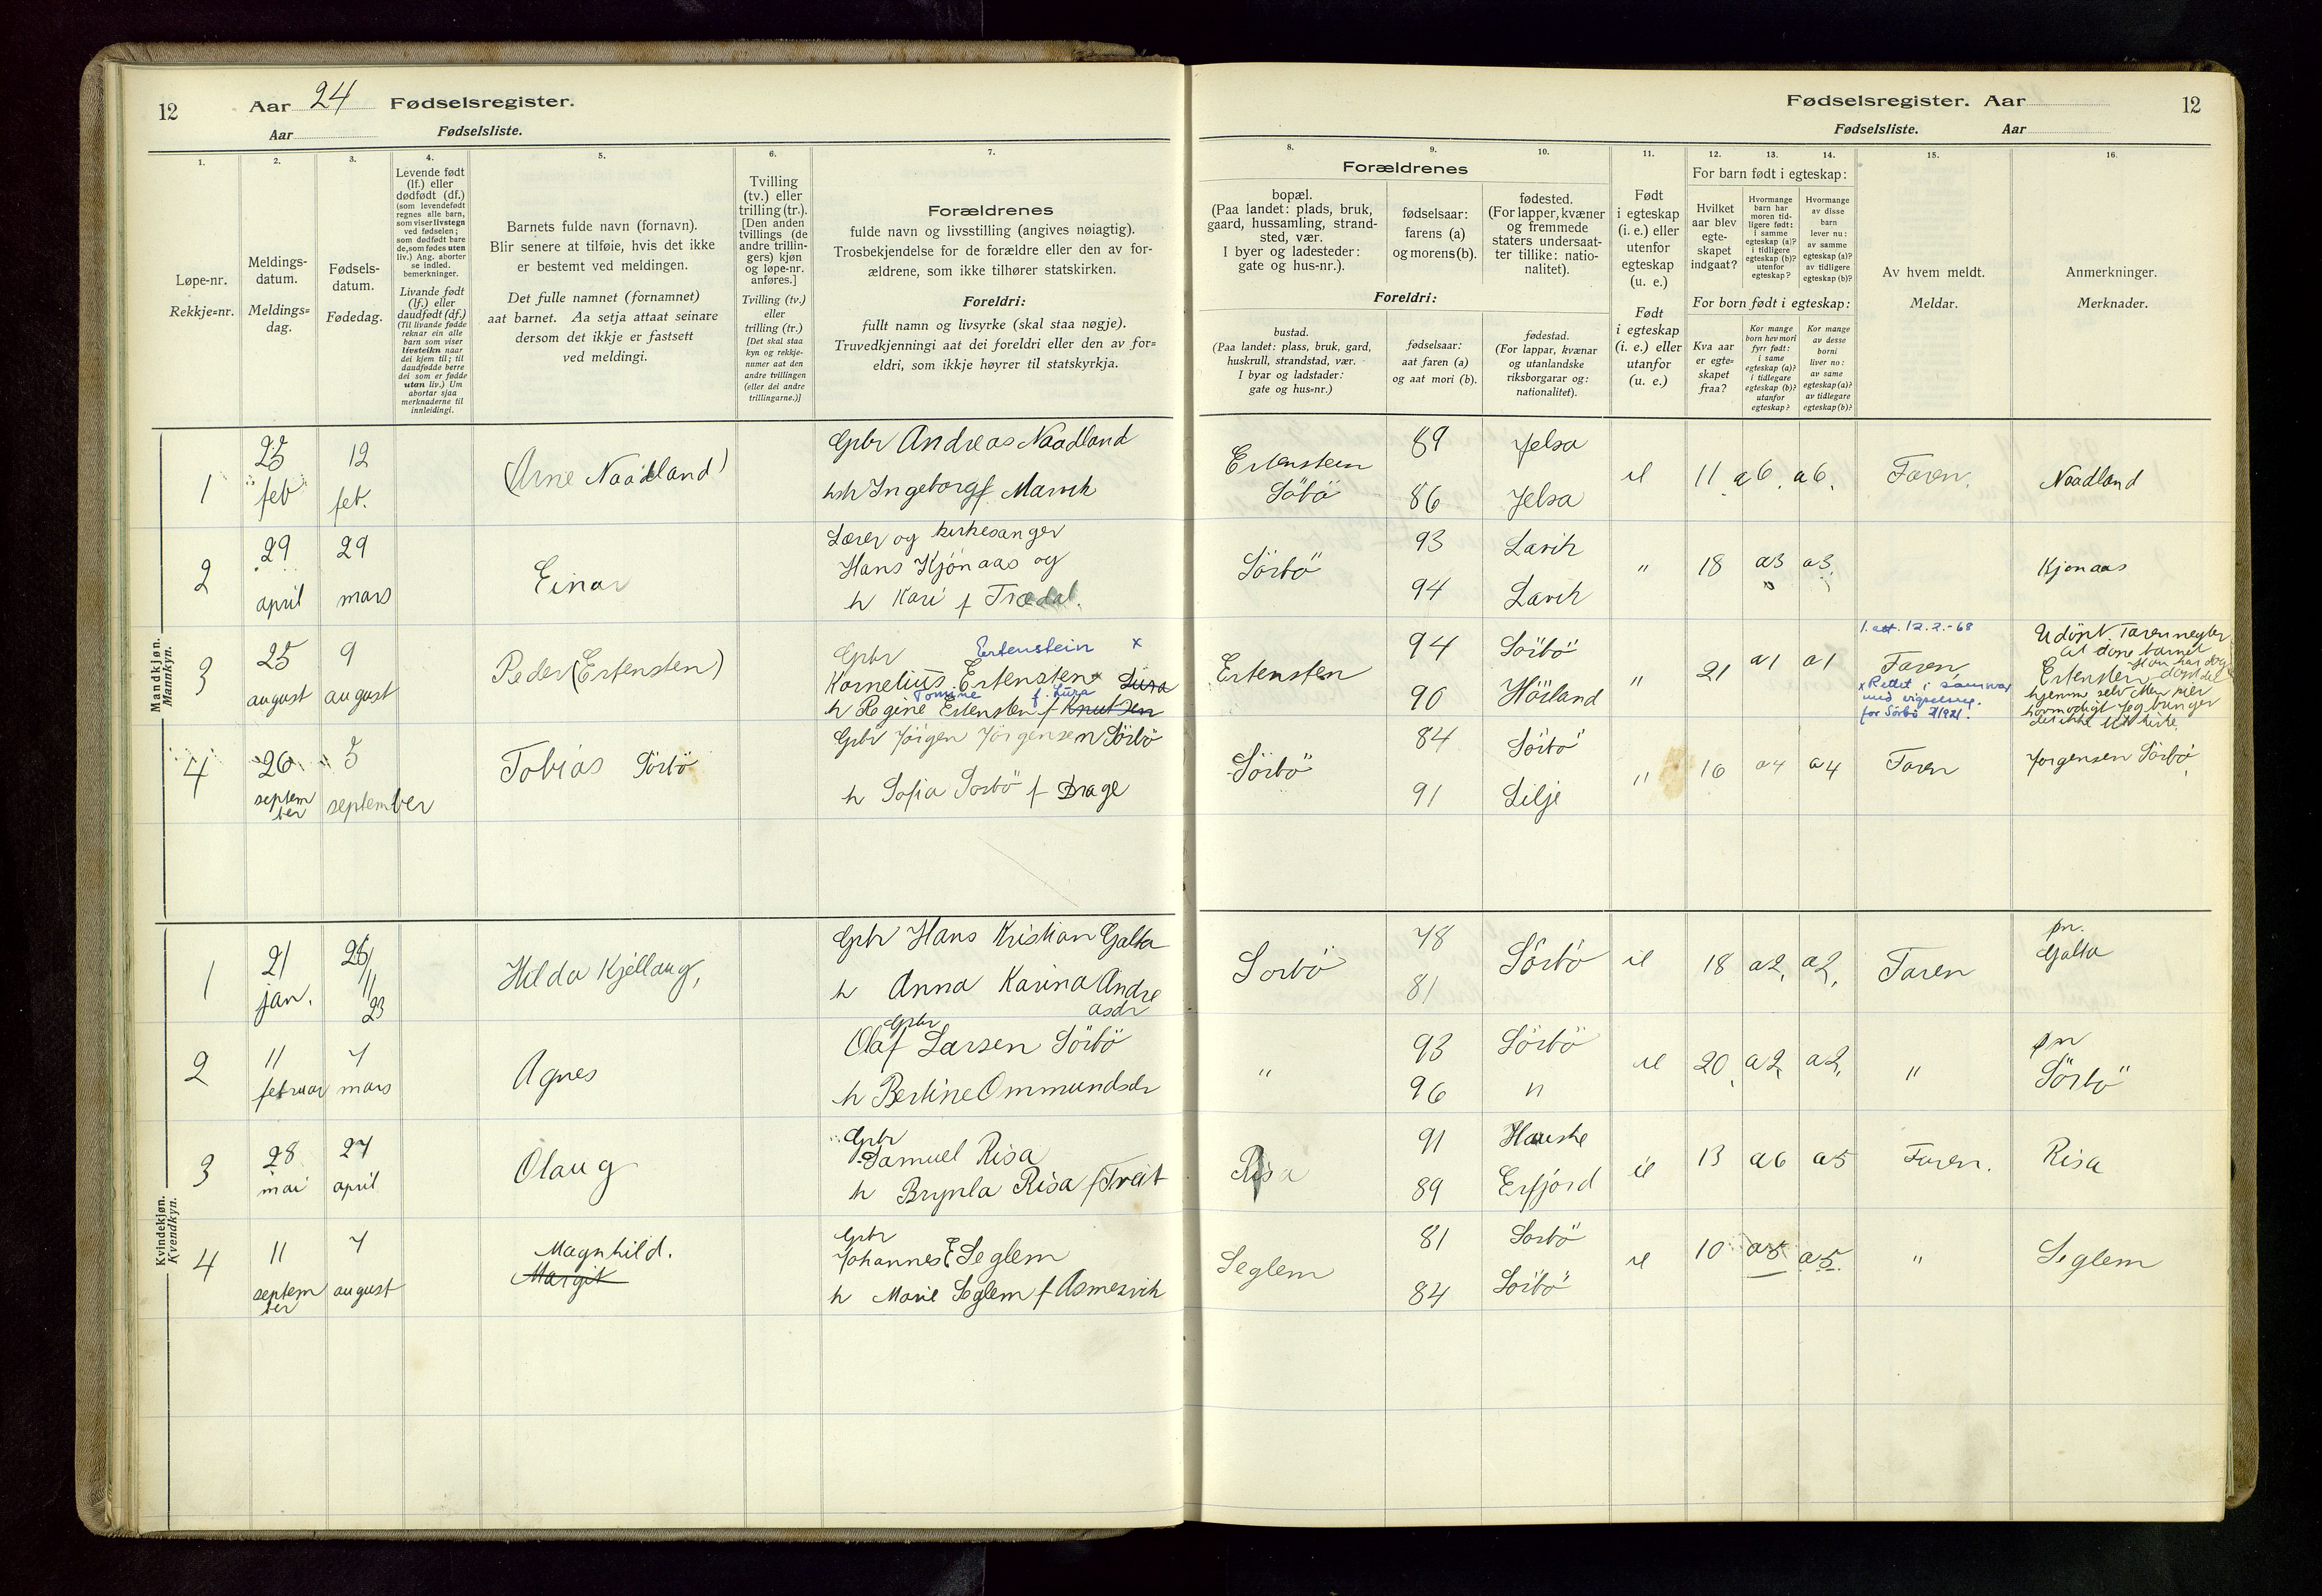 12
Aar 24 Fødselsregister.
Aar Fødselsliste.
1.
Løpe-nr.
Rekkje=nr.
2.
Meldings-
datum.
Meldings=
dag.
3.
Fødsels-
datum.
Fødedag.
4.
Levende født
(lf.) eller
dødfødt (df.)
(som levendefødt
regnes alle barn,
som viser livstegn
ved fødselen;
som dødfødt bare
de, som fødes uten
liv.) Ang. aborter
se indled.
bemerkninger.
Livande født
(lf.) eller
daudfødt (df.)
(Til livande fødde
reknar ein alle
barn som viser
livsteikn naar
dei kjem til; til
daudfødde berre
dei som er fødde
utan liv.) Um
abortar sjaa
merknaderne til
innleidingi.
5.
Barnets fulde navn (fornavn).
Blir senere at tilføie, hvis det ikke
er bestemt ved meldingen.
Det fulle namnet (fornamnet)
aat barnet. Aa setja attaat seinare
dersom det ikkje er fastsett
ved meldingi.
6.
Tvilling
(tv.) eller
trilling (tr.).
[Den anden
tvillings (de
andre trillin-
gers) kjøn
og løpe-nr.
anføres.]
Tvilling (tv.)
eller
trilling (tr.)
[Det skal staa
kyn og rekkje-
numer aat den
andre tvillingen
(eller dei andre
trillingarne.)]
7.
Forældrenes
fulde navn og livsstilling (angives nøiagtig).
Trosbekjendelse for de forældre eller den av for-
ældrene, som ikke tilhører statskirken.
Foreldri:
fullt namn og livsyrke (skal staa nøgje).
Truvedkjenningi aat dei foreldri eller den av for=
eldri, som ikkje høyrer til statskyrkja.
Mandkjøn.
Mannkyn.
1
25
feb
12
feb.
(Arne Naadland)
Gbr Andreas Naadland
h Ingeborg f Marvik
2
29
april
29
mars
Einar
Lærer og kirkesanger
Hans Kjönaas og
h Kari f Trædal.
3
25
august
9
august
Peder (Ertensten)
Gbr Ertenstein x
Kornelius Ertensten x Lura
Tomine f. Lura
h Regine Ertensten f Knutsen
4
26
septem
ber
5
september
Tobias Sörbö
Gbr Jörgen Jörgensen Sörbö
h Sofia Sörbö f Drage
Kvindekjøn.
Kvendkyn.
1
21
jan.
25/
11
23
Hilda Kjellaug,
Gbr Hans Kristian Galta
h Anna Karina Andre
asdr
2
11
februar
7
mars
Agnes
Gbr
Olaf Larsen Sörbö
h Bertine Ommundsdr
3
28
mai
27
april
Olaug
Gbr
Samuel Risa
h Brynla Risa f Tveit
4
11
septem
ber
7
august
Magnhild.
Margit
Gbr
Johannes E Seglem
h Marie Seglem f Asmervik
Fødselsregister. Aar 12
Fødselsliste. Aar
8.
Forældrenes
bopæl.
(Paa landet: plads, bruk,
gaard, hussamling, strand-
sted, vær.
I byer og ladesteder:
gate og hus-nr.).
Foreldri:
bustad.
(Paa landet: plass, bruk, gard,
huskrull, strandstad, vær.
I byar og ladstader:
gate og hus=nr.)
9.
fødselsaar:
farens (a)
og morens (b).
fødselsaar:
aat faren (a)
og aat mori (b).
10.
fødested.
(For lapper, kvæner
og fremmede
staters undersaat-
ter tillike: natio-
nalitet).
fødestad.
(For lappar, kvænar
og utanlandske
riksborgarar og:
nationalitet).
11.
Født
i egteskap
(i. e.) eller
utenfor
egteskap
(u. e.)
Født
i egteskap
(i. e.) eller
utanfor
(u. e.)
12. 13. 14.
For barn født i egteskap:
Hvilket
aar blev
egte-
skapet
indgaat?
Hvormange
barn har
moren tid-
ligere født:
i samme
egteskap (a)?
i tidligere
egteskap (b)?
utenfor
egteskap?
Hvormange
av disse
barn
lever nu:
av samme
egteskap (a)?
av tidligere
egteskap (b)?
For born født i egteskap:
Kva aar
er egte=
skapet
fraa?
Kor mange
born hev mori
fyrr født:
i same
egteskap (a)?
i tidlegare
egteskap (b)?
utanfor
egteskap?
Kor mange
av desse
borni
liver no:
av same
egteskap (a)?
av tidlegare
egteskap (b)?
15.
Av hvem meldt.
Meldar.
16.
Anmerkninger.
Merknader.
Ertenstein
Söbö
89
86
Jelsa
Jelsa
ie 11 a6. a6. Faren. Naadland
Sörbö
93
94
Lavik
Lavik
" 18 a3 a3 Kjonaas
Ertensten
94
90
Sörbö
Hörland
" 21 a1 a1
1. att. 12.2.-68
Faren
x Rettet i samsvar
med vigselreg.
for Sörbö 7/1921.
Udöpt. Faren negter
at döpe barnet
Ertensten
hjemme selv Men
Sörbö
84
91
Sörbö
Lilje
" 16 a4 a4 Faren Jorgensen Sörbö
Sorbö
78
81
Sörbö
ie 18 a2, a2, Faren
pn.
Galta
"
93
96
Sörbö
"
ie 20 a2, a2, "
pn
Sörbö
Risa
91
89
Hauske
Erfjord
ie 13 a6 a5 Faren. Risa
Seglem
81
84
Sorbö
Sörbö
ie 10 a5 a5. " Seglem